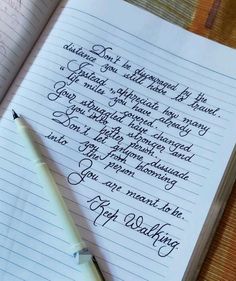 Don't be discouraged by the
distance you still have to travel.
"Instead", appreciate how many
miles you have already
covered.
Your struggles have changed
you into better stronger and
Don't let anyone dissuade
you from blooming
into the person
You are meant to be.
~Keep Walking